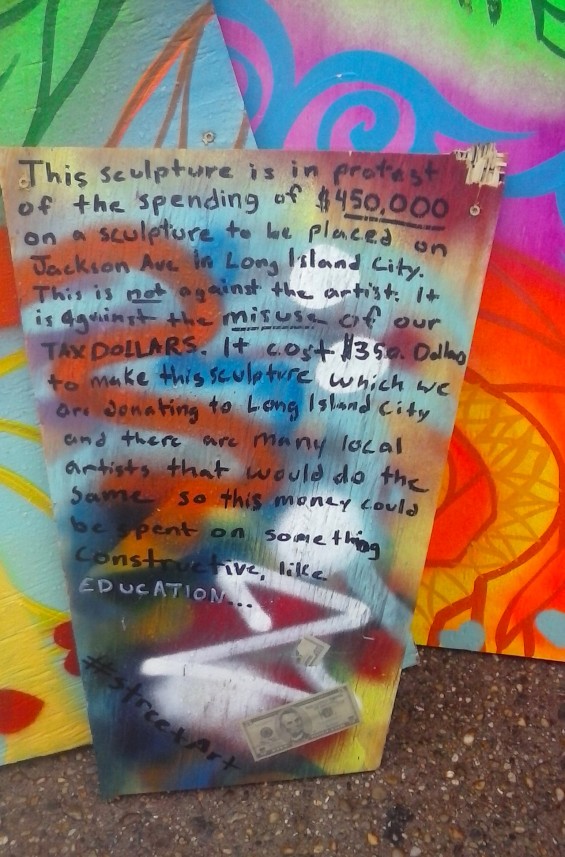 This sculpture is in protest
of the spending of $450,000
on a sculpture to be placed on
Jackson Ave in Long Island City.
This is not against the artist. It
is against the misuse of our
TAX DOLLARS. It cost $350. Dollars
to make this sculpture which we
are donating to Long Island City
and there are many local
artists that would do the
same so this money could
be spent on something
constructive, like
EDUCATION...
#streetArt